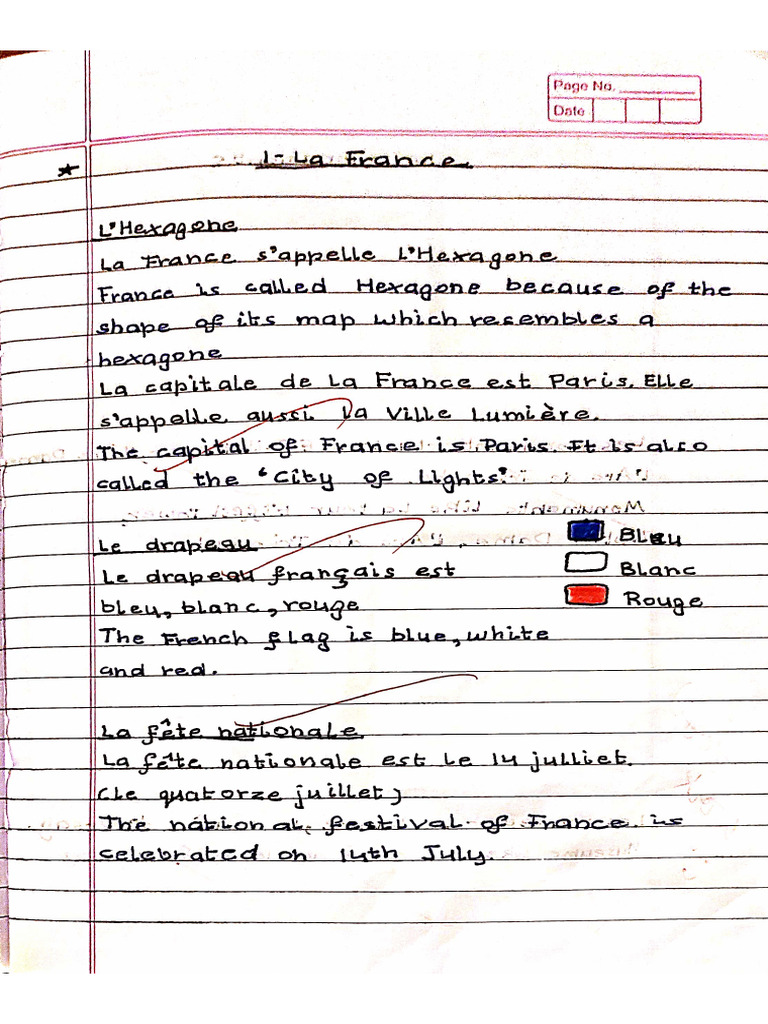 Page No.
Date
1- La France
L'Hexagone
La France s'appelle L'Hexagone
France is called Hexagone because of the
shape of its map which resembles a
hexagone
La capitale de La France est Paris. Elle
s'appelle aussi la Ville Lumière.
The capital of France is Paris. It is also
called the 'City of Lights'
Le drapeau
Bleu
Le drapeau français est
Blanc
bleu, blanc, rouge
Rouge
The French flag is blue, white
and red.
La fête nationale
La fête nationale est le 14 julliet.
(le quatorze juillet)
The national festival of France is
celebrated on 14th July.